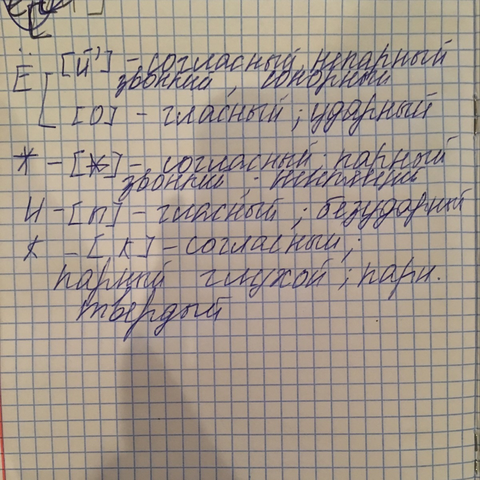 Ё [й'] - согласный, непарный
звонкий, сонорный
[о] - гласный; ударный
ж - [ж] - согласный; парный
звонкий;
И - [и] - гласный; безударный
К - [к] - согласный;
парный глухой; парн.
твердый